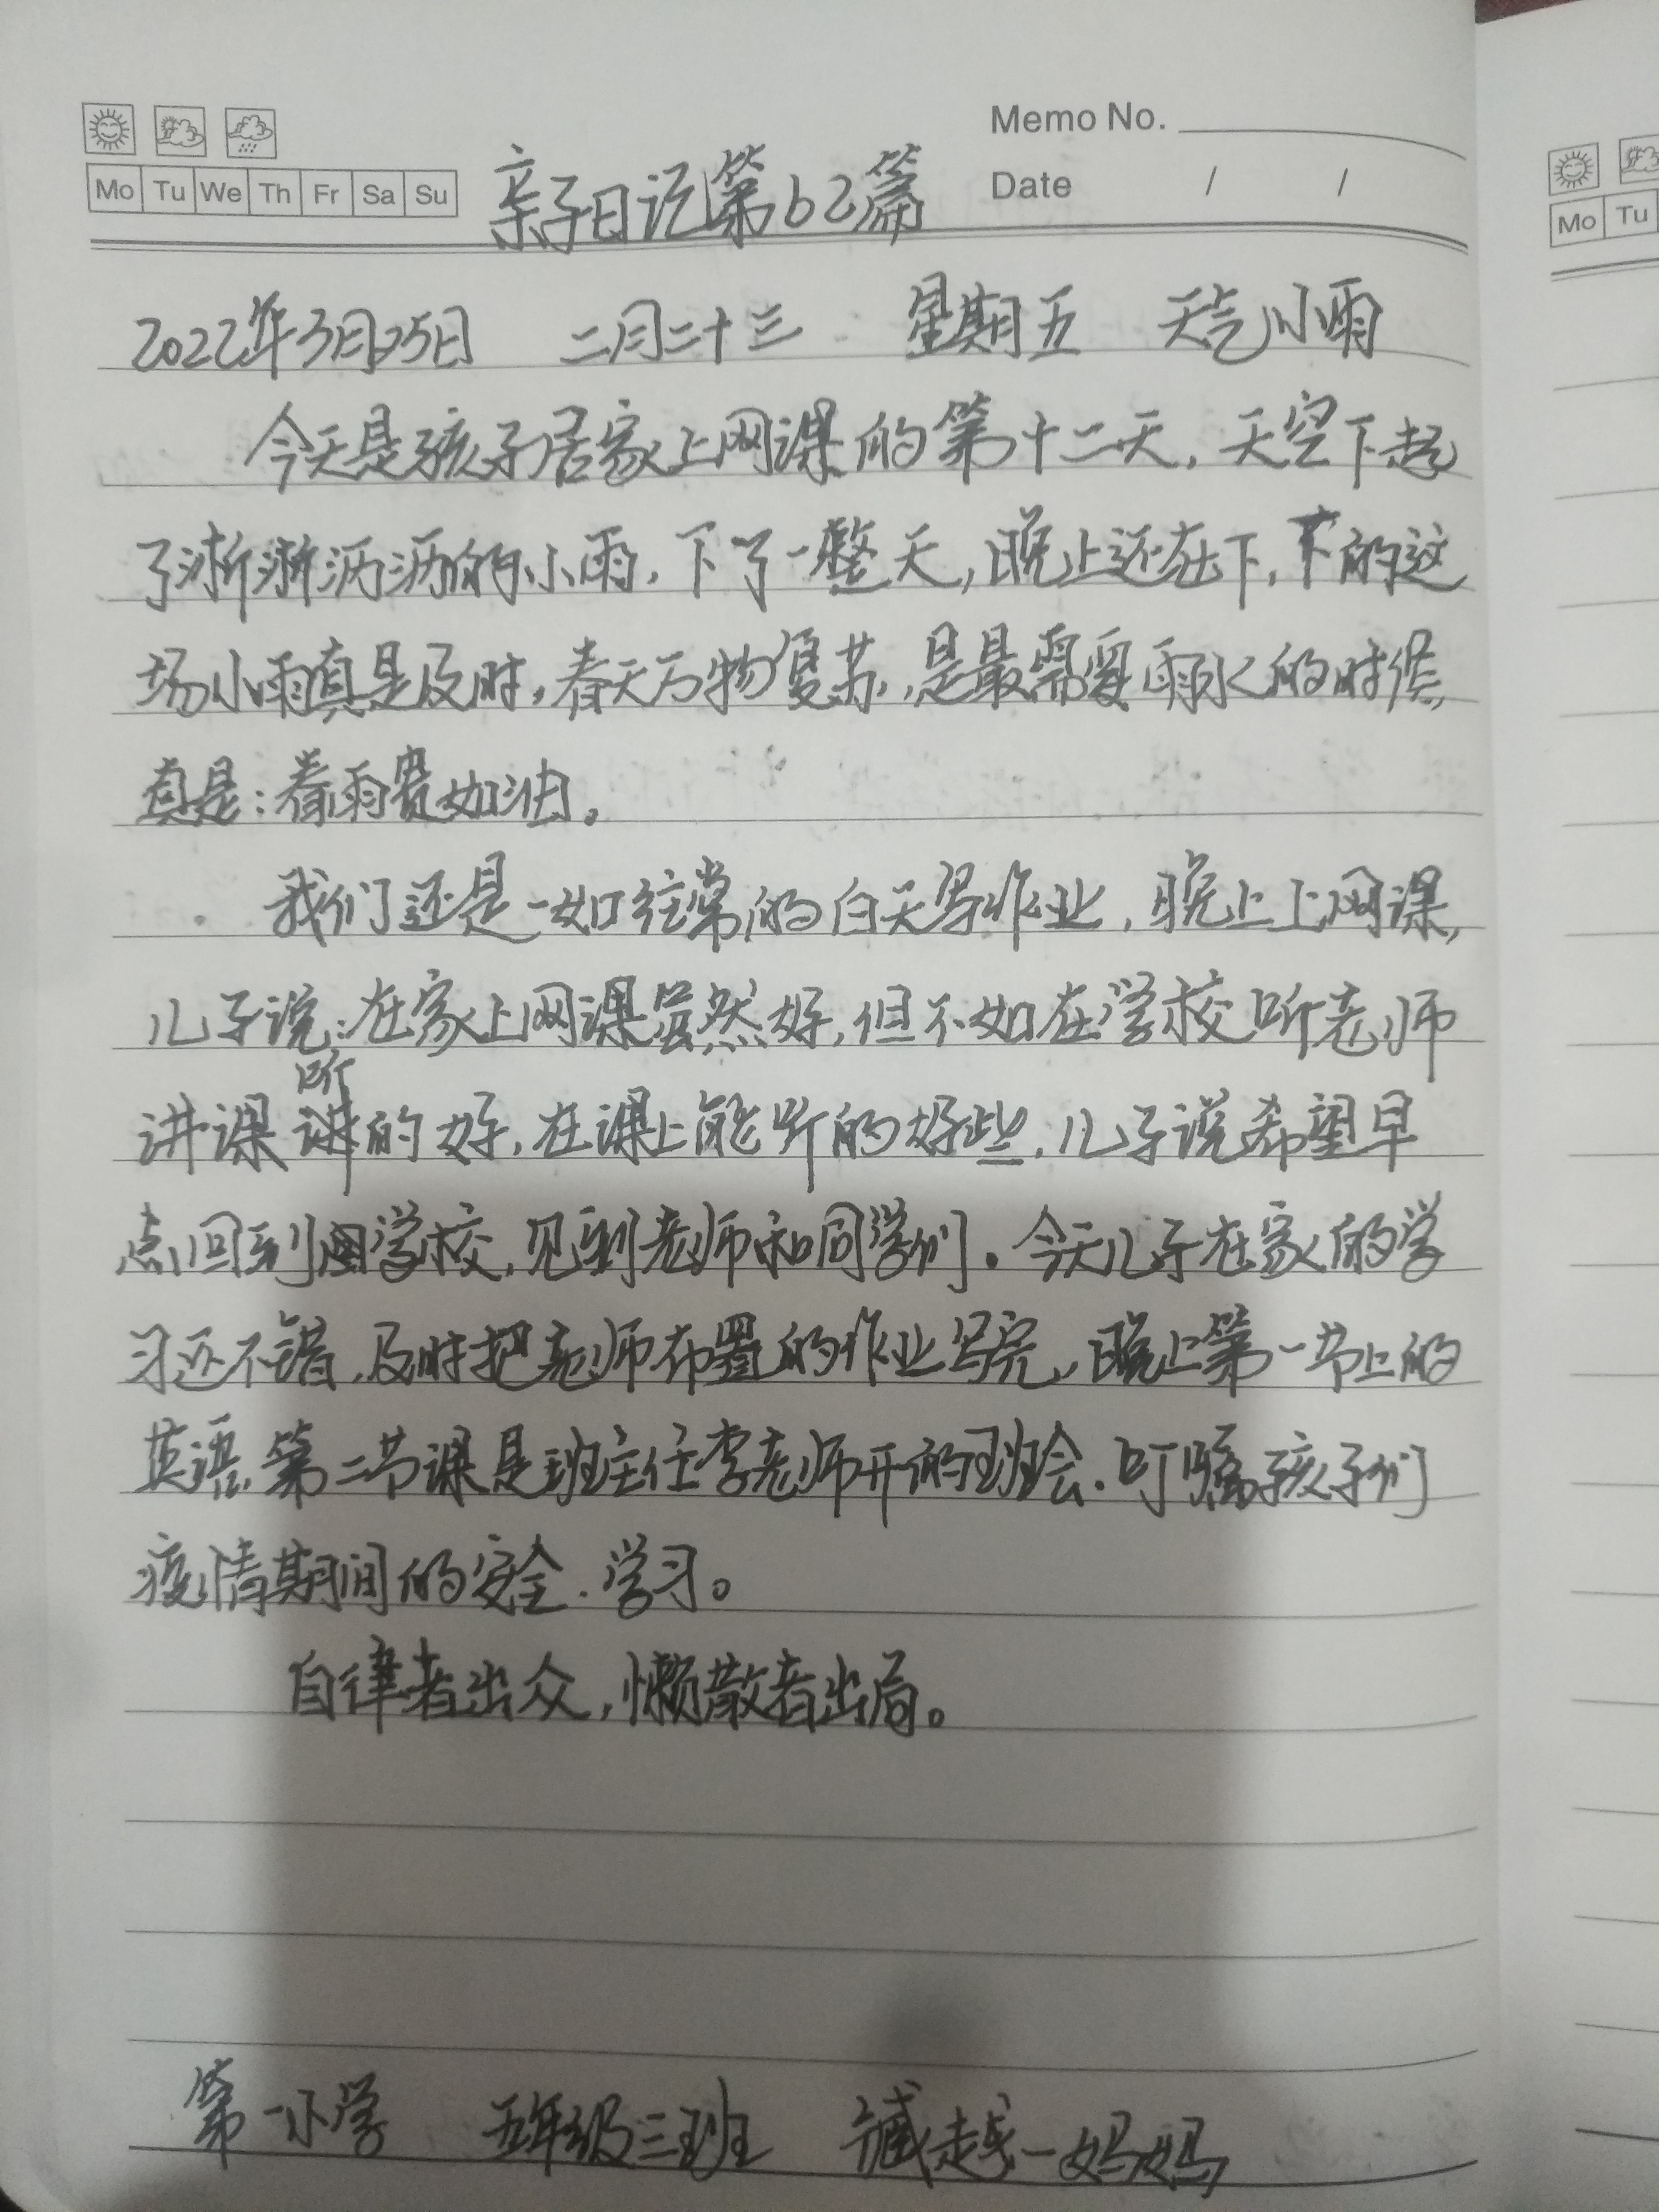 Memo No.
Mo Tu We Th Fr Sa Su
亲子日记第62篇
Date / /
Mo Tu
2022年3月25日 二月二十三 星期五 天气小雨
今天是孩子居家上网课的第十二天，天空下起
了淅淅沥沥的小雨，下了一整天，晚上还在下，下的这
场小雨真是及时，春天万物复苏，是最需要雨水的时候，
真是：春雨贵如油。
我们还是一如往常的白天写作业，晚上上网课，
儿子说：在家上网课虽然好，但不如在学校听老师
讲课听的好，在课上能听的好些，儿子说希望早
点回到学校，见到老师和同学们。今天儿子在家的学
习还不错，及时把老师布置的作业写完，晚上第一节上的
英语，第二节课是班主任李老师开的班会，叮嘱孩子们
疫情期间的安全、学习。
自律者出众，懒散者出局。
第一小学 五年级三班 臧越一妈妈